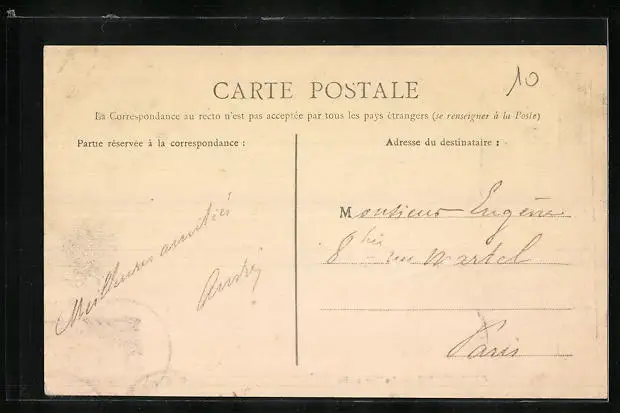 CARTE POSTALE
10
La Correspondance au recto n'est pas acceptée par tous les pays étrangers (se renseigner à la Poste)
Partie réservée à la correspondance :
Adresse du destinataire :
Meilleures amitiés
André
Monsieur Eugène
8 bis rue Martel
Paris